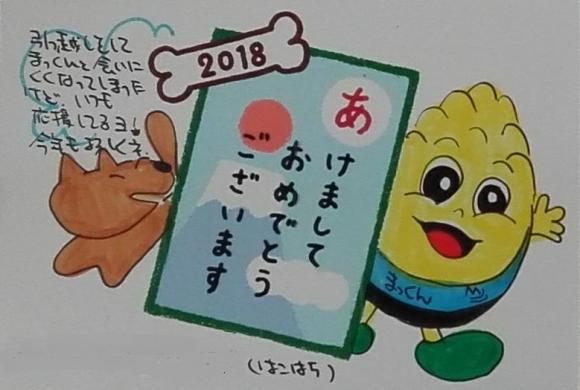 引っ越しをして
まっくんと会いに
くくなってしまった
けど、いつも
応援してるヨ!
今年もよろしくネ
2018
あ
けまして
おめでとう
ございます
まっくん
(はこはち)